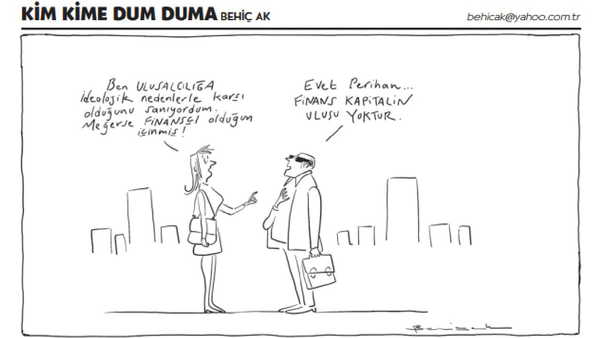 KİM KİME DUM DUMA BEHİÇ AK
behicak@yahoo.com.tr
Ben ULUSALCILIĞA
ideolojik nedenlerle karşı
olduğunu sanıyordum.
Meğerse FİNANSÇI olduğun
içinmiş!
Evet Perihan...
FİNANS KAPİTALİN
ULUSU YOKTUR.